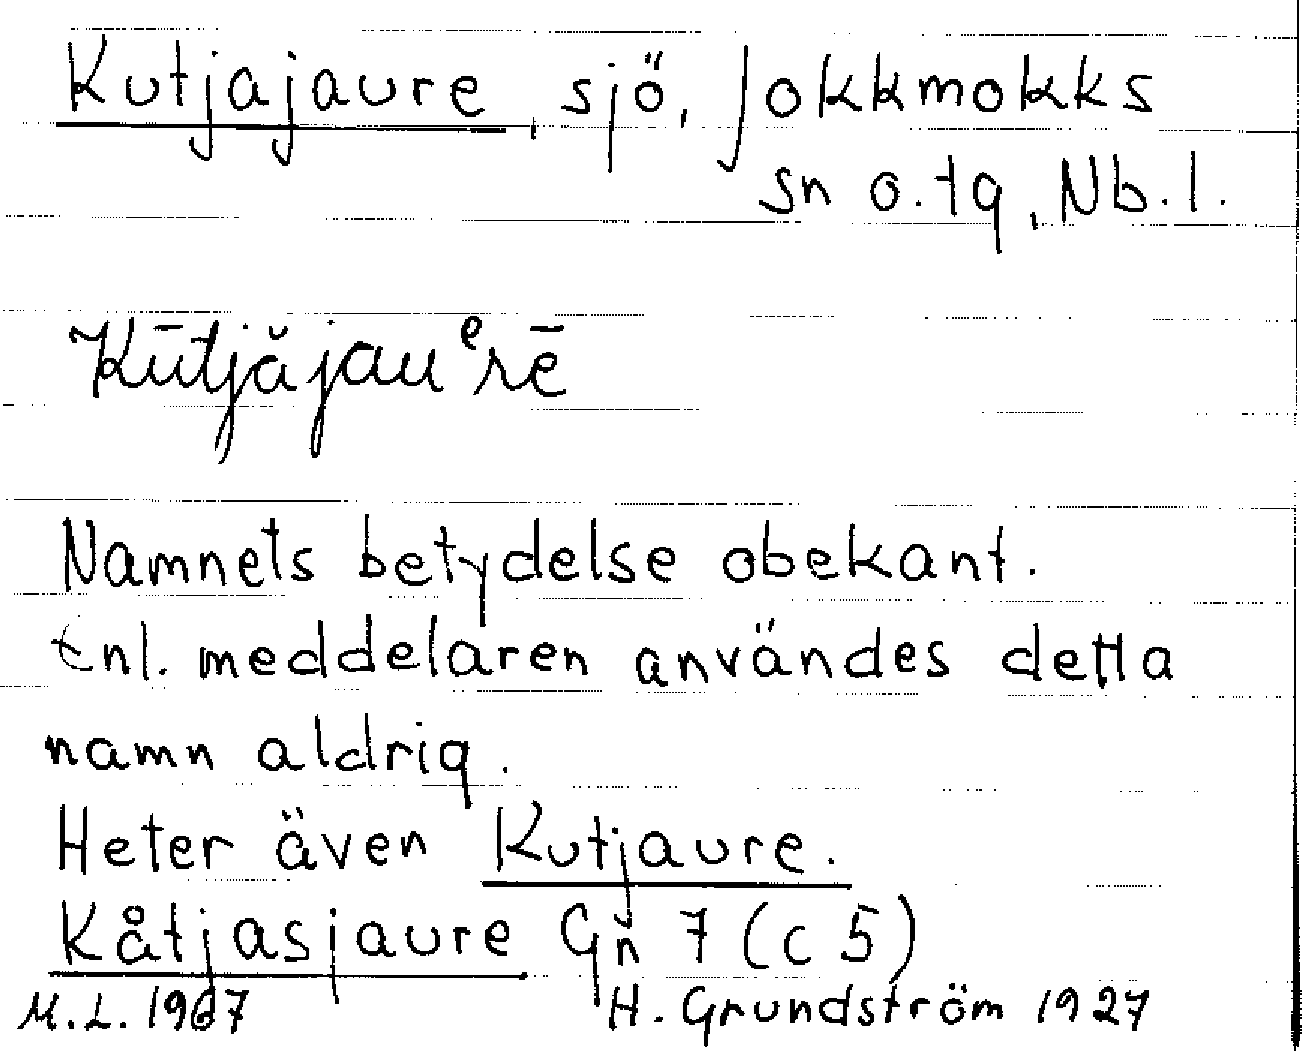 Kutjajaure, sjö, Jokkmokks
sn o. tg, Nb. l.
Kūtjăjauᵉrē
Namnets betydelse obekant.
Enl. meddelaren användes detta
namn aldrig.
Heter även Kutjaure.
Kåtjasjaure Gn 7 (c 5)
M.L. 1967 H. Grundström 1927